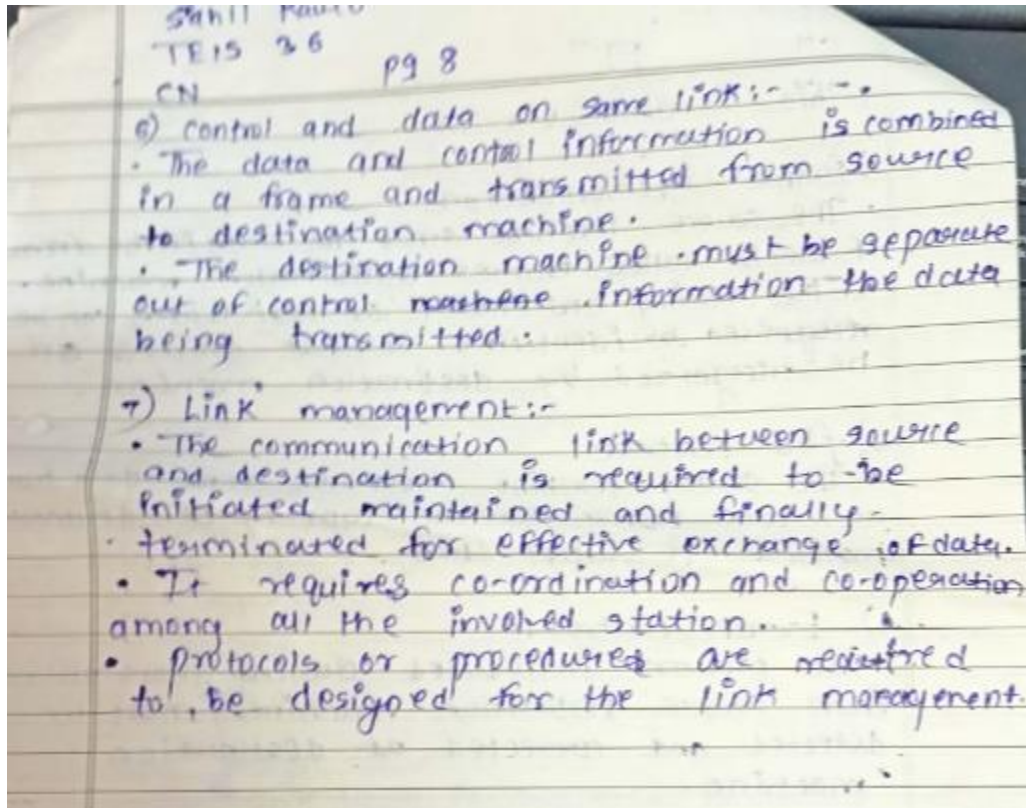 Sahil
TEIS 36
pg 8
CN
6) control and data on same link:-
• The data and control information is combined
in a frame and transmitted from source
to destination machine.
• The destination machine must be separate
out of control information the data
being transmitted.
7) Link management:-
• The communication link between source
and destination is required to be
initiated maintained and finally
terminated for effective exchange of data.
• It requires co-ordination and co-operation
among all the involved station.
• protocols or procedures are required
to be designed for the link management.